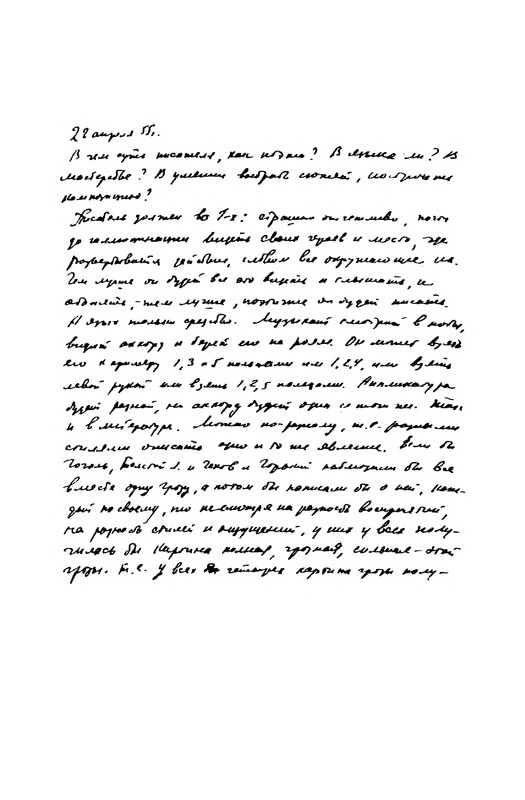 22 апреля 55г.
В чем суть писателя, как поэта? В языке ли? В
мастерстве? В умении выбрать сюжет, построить
композицию?
Писатель должен во 1-х: страшно отчетливо, почти
до галлюцинации видеть своих героев и место, где
развертывается действие, словом все окружающее их.
Чем лучше он будет все это видеть и слышать, и
обонять, – тем лучше, поэтичнее он будет писать.
А язык только средство. Музыкант смотрит в ноты,
видит аккорд и берет его на рояле. Он может взять
его к примеру 1, 3 и 5 пальцами или 1, 2, 4, или взять
левой рукой или взять 1, 2, 5 пальцами. Аппликатура
будет разной, но аккорд будет один и тот же. Так
и в литературе. Можно по-разному, т.е. разными
стилями описать одно и то же явление. Если бы
Гоголь, Толстой Л. и Чехов и Горький наблюдали бы все
вместе одну грозу, а потом бы написали бы о ней, каж-
дый по своему, то несмотря на разность восприятий,
на разность стилей и ощущений, у них у всех полу-
чилась бы картина полная, грозная, сильная – этой
грозы. Т.е. у всех четырех картина грозы полу-